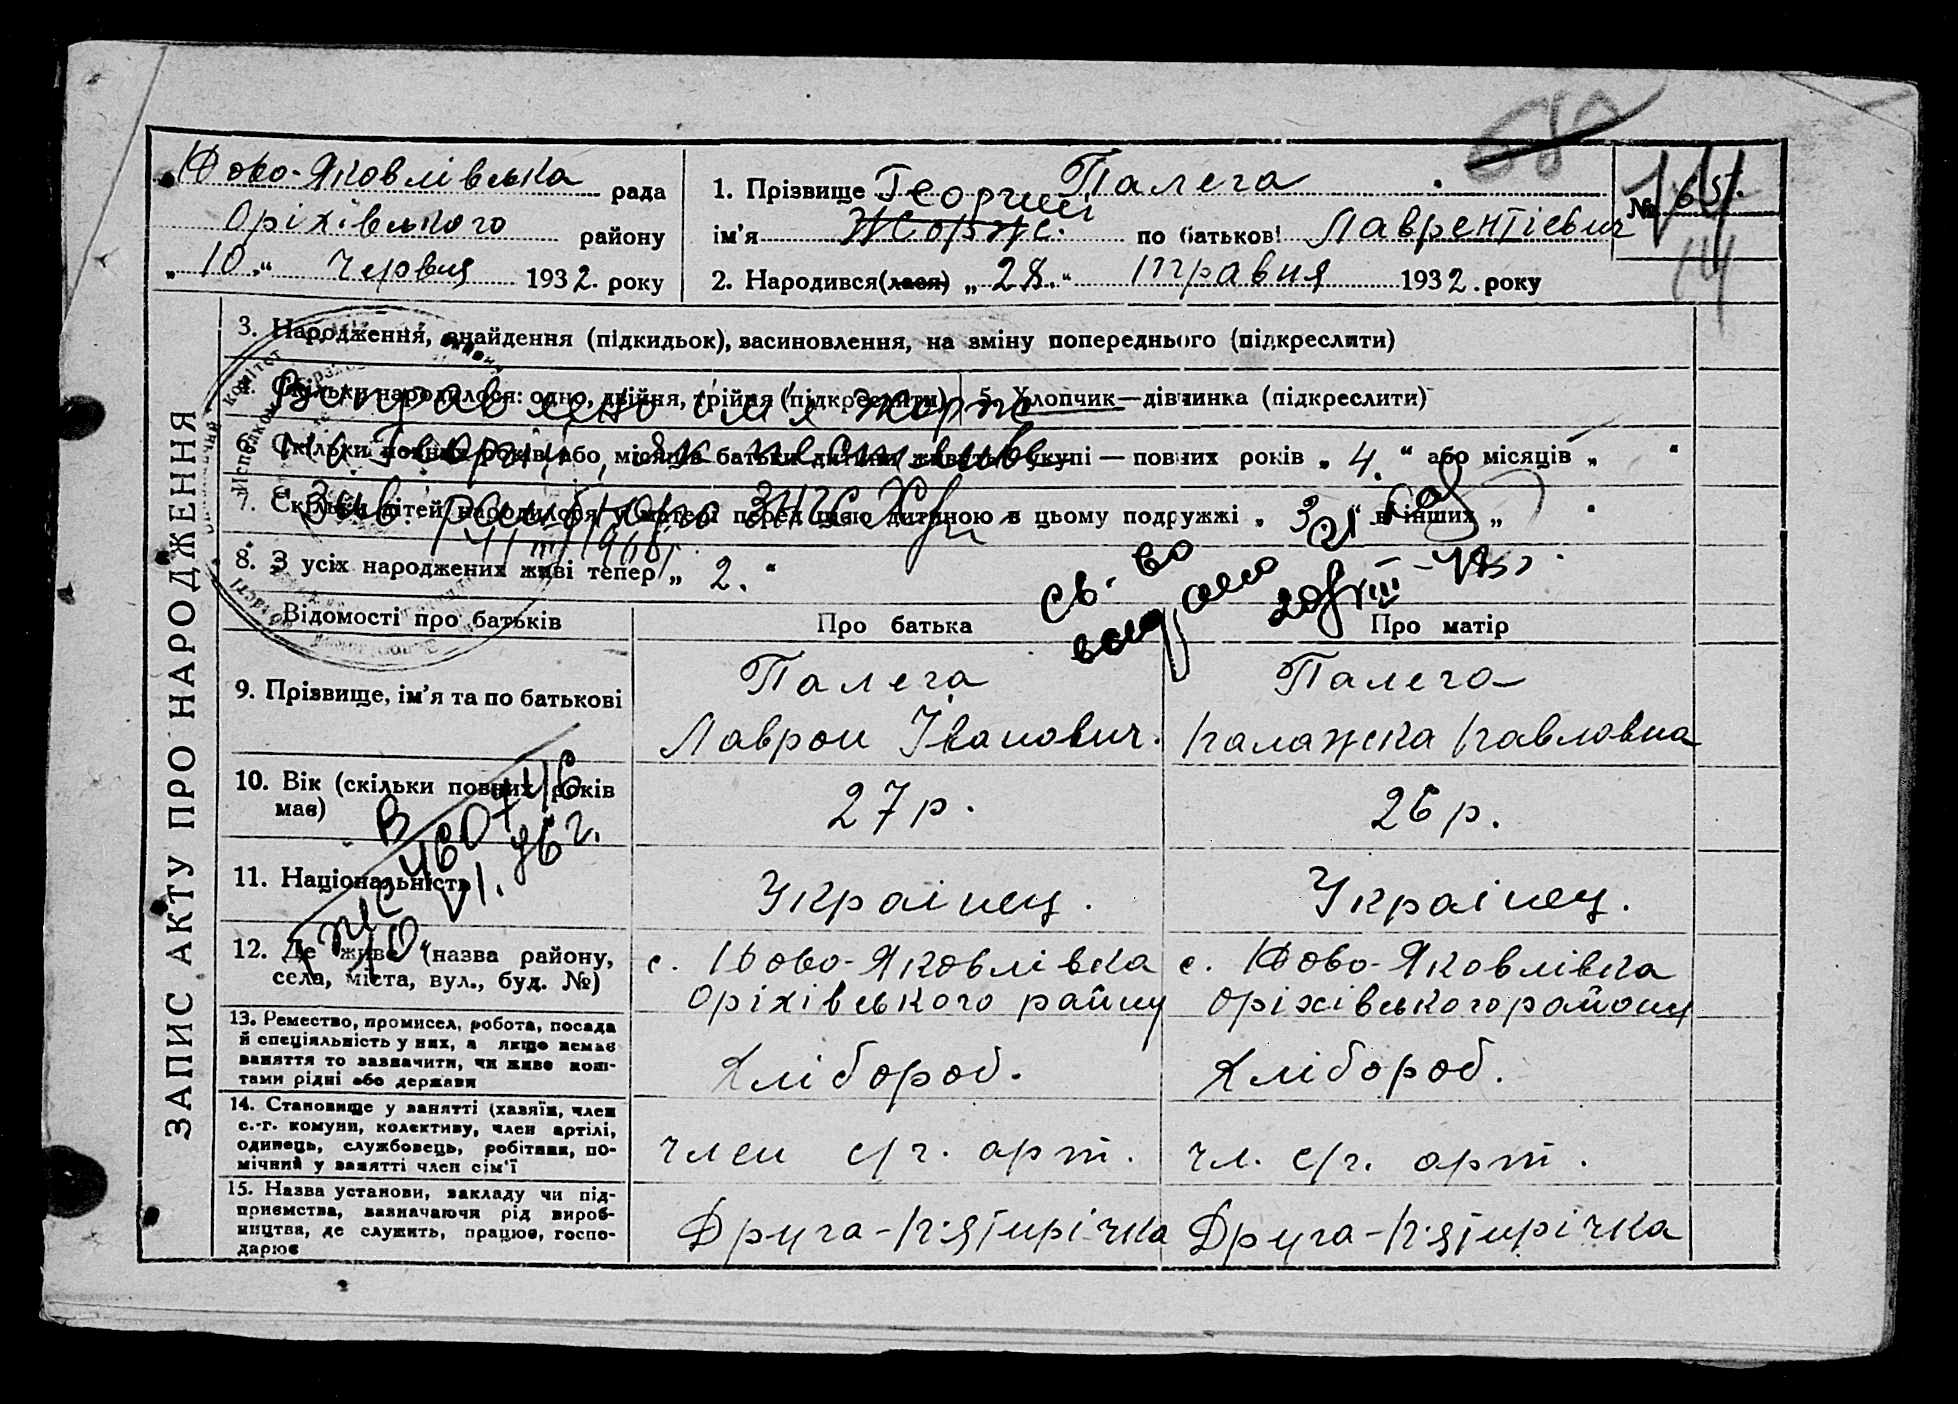 Ново-Яковлівська рада
Оріхівського району
„10.“ Червня 1932. року
1. Прізвище Палега
Георгий
ім'я Жорж. по батькові Лаврентієвич
2. Народився(лася) „28.“ травня 1932. року
№ 65.
14
ЗАПИС АКТУ ПРО НАРОДЖЕННЯ
3. Народження, знайдення (підкидьок), засиновлення, на зміну попереднього (підкреслити)
4. Скільки народилося: одно, двійня, трійня (підкреслити) 5. Хлопчик—дівчинка (підкреслити)
Виправлено ім'я Жорж
6. Скільки повних років або місяців батьки дитини живуть вкупі — повних років „4.“ або місяців „ “
на Георгій,
7. Скільки дітей народилося у матері перед цією дитиною в цьому подружжі „3“ в інших „ “
Зав. ЗАГС
8. З усіх народжених живі тепер „2.“
св. во
выдано
Відомості про батьків Про батька Про матір
9. Прізвище, ім'я та по батькові Палега Палега
Лаврон Іванович. Палажка Павловна
10. Вік (скільки повних років має) 27 р. 26 р.
11. Національність Украінец. Украінец.
12. Де живе (назва району, села, міста, вул., буд. №) с. Ново-Яковлівка с. Ново-Яковлівка
Оріхівського району Оріхівського району
13. Ремество, промисел, робота, посада
й спеціяльність у них, а якщо немає
заняття то зазначити, чи живе кош-
тами рідні або держави
Хлібороб. Хлібороб.
14. Становище у занятті (хазяїн, член
с.-г. комуни, колективу, член артілі,
одинець, службовець, робітник, по-
мічний у занятті член сім'ї
член с/г. арт. чл. с/г. арт.
15. Назва установи, закладу чи під-
приємства, зазначаючи рід вироб-
ництва, де служить, працює, госпо-
дарює
Друга-П'ятирічка Друга-П'ятирічка